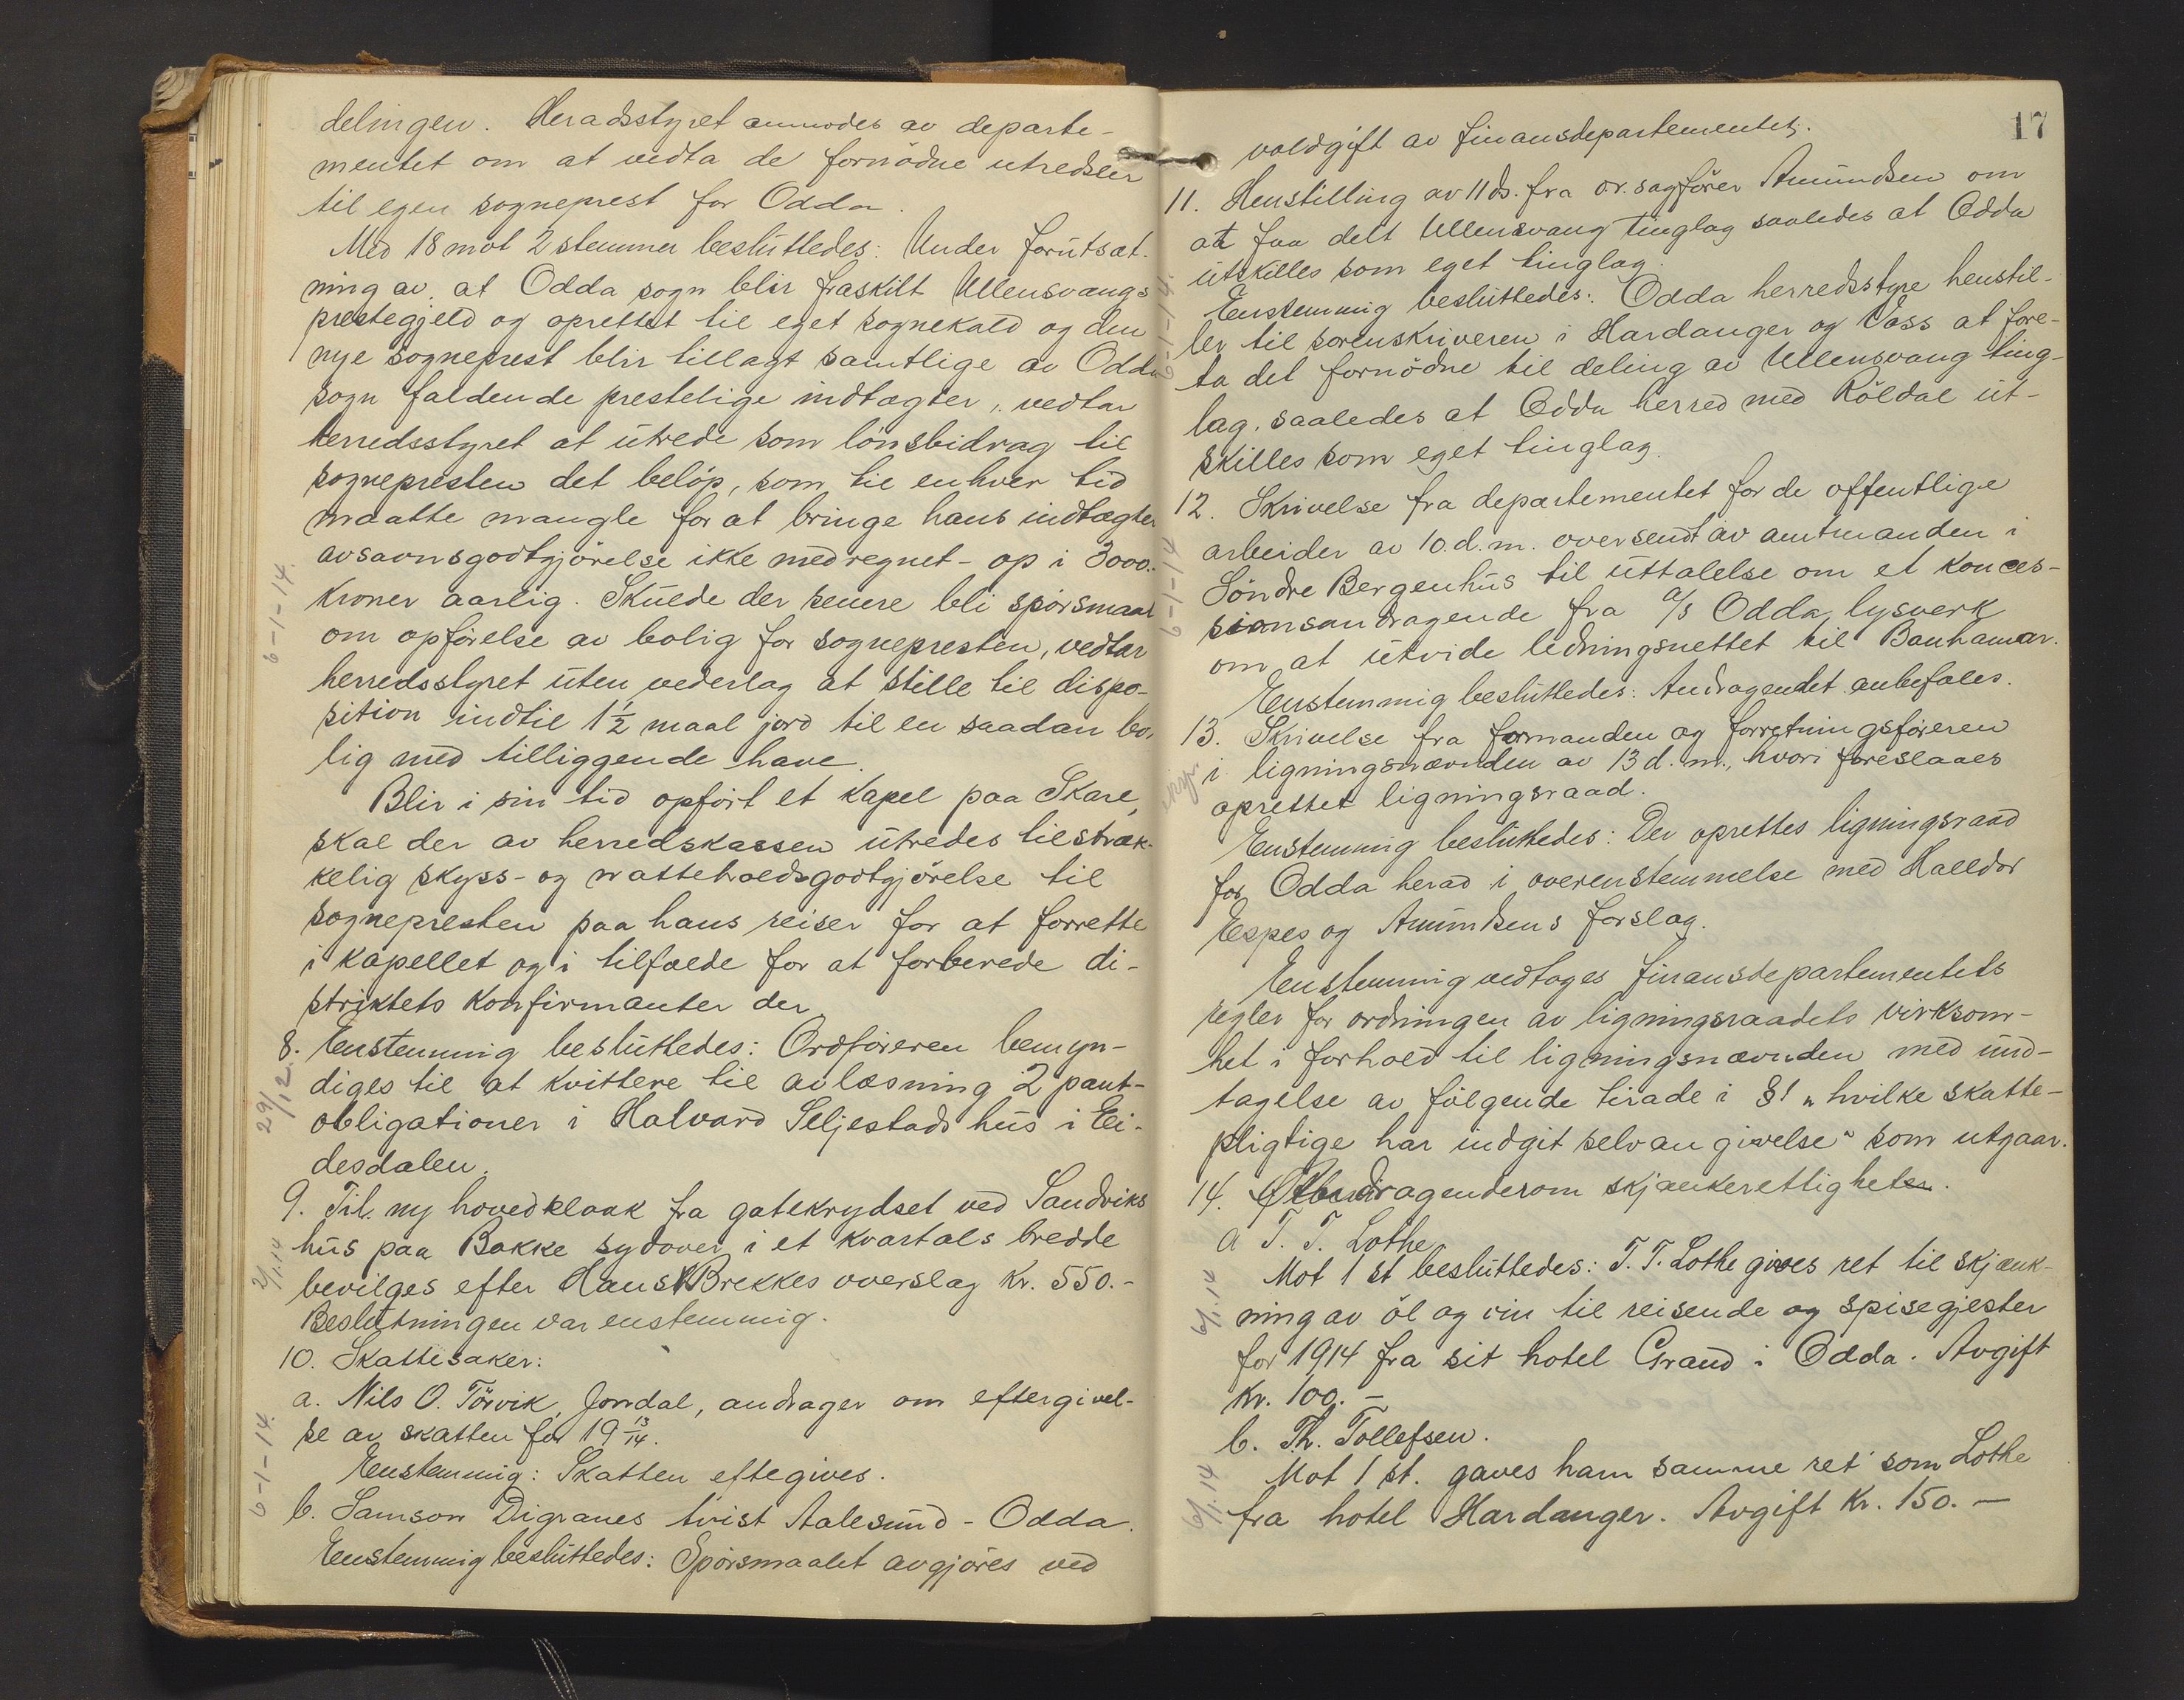 delingen. Heradsstyret anmodes av departe-
mentet om at vedta de fornödne utredsler
til egen sogneprest for Odda.
Med 18 mot 2 stemmer beslúttedes: Under forútsæt-
ning av, at Odda sogn blir fraskilt Ullensvangs
prestegjeld og oprettet til eget sognekald og den
nye sogneprest blir tillagt samtlige av Odda
sogn faldende prestelige indtægter, vedtar
herredsstyret at útrede som lönsbidrag til
sognepresten det belöp, som til enhver tid
maatte mangle for at bringe hans indtægter
avsavnsgodtgjörelse ikke medregnet - op i 3000.-
kroner aarlig. Skúlde der senere bli spörsmaal
6-1-14.
om opförelse av bolig for sognepresten, vedtar
herredsstyret úten vederlag at stille til dispo-
sition indtil 1½ maal jord til en saadan bo-
lig med tilliggende have.
Blir i sin tid opfört et kapel paa Skare,
skal der av herredskassen útredes tilstræk-
kelig skyss- og natteholdsgodtgjörelse til
sognepresten paa hans reiser for at forrette
i kapellet og i tilfælde for at forberede di-
striktets konfirmanter der
8. Enstemmig beslúttedes: Ordföreren bemyn-
29/12.
diges til at kvittere til avlæsning 2 pant-
obligationer i Halvard Seljestads hús i Ei-
desdalen.
9. Til ny hovedkloak fra gatekrydset ved Sandviks
2/1.14
hús paa Bakke sydover i et kvartals bredde
bevilges efter Hans Brekkes overslag Kr. 550.-
Beslutningen var enstemmig.
10. Skattesaker:
a. Nils O. Törvik, Jondal, andrager om eftergivel-
6-1-14.
se av skatten for 19 13/14.
Enstemmig: Skatten eftegives.
b. Samson Digranes tvist Aalesúnd - Odda.
Enstemmig beslúttedes: Spörsmaalet avgjöres ved
17
voldgift av finansdepartementet.
11. Henstilling av 11 ds. fra o.r. sagförer Amúndsen om
at faa delt Ullensvang tinglag saaledes at Odda
útskilles som eget tinglag.
6-1-14.
Enstemmig beslúttedes: Odda herredsstyre henstil-
ler til sorenskriveren i Hardanger og Voss at fore-
ta det fornödne til deling av Ullensvang ting-
lag, saaledes at Odda herred med Röldal út-
skilles som eget tinglag.
12. Skrivelse fra departementet for de offentlige
6-1-14
arbeider av 10. d.m. oversendt av amtmanden i
Söndre Bergenhús til úttalelse om et konces-
sionsandragende fra a/s Odda lysverk
om at útvide ledningsnettet til Banhamar.
Enstemmig beslúttedes: Andragendet anbefales.
13. Skrivelse fra formanden og forretningsföreren
i ligningsnævnden av 13 d.m., hvori foreslaaes
oprettet ligningsraad.
Enstemmig beslúttedes: Der oprettes ligningsraad
for Odda herad i overenstemmelse med Halldor
Espes og Amúndsens forslag.
Enstemmig vedtages finansdepartementets
regler for ordningen av ligningsraadets virksom-
het i forhold til ligningsnævnden med únd-
tagelse av fölgende tirade i §1 „hvilke skatte-
pligtige har indgit selvangivelse" som utgaar.
14. andragender om skjænkerettigheter.
a T. T. Lothe.
Mot 1 st beslúttedes: T. T. Lothe gives ret til skjænk-
6/1.14
ning av öl og vin til reisende og spisegjester
for 1914 fra sit hotel Grand i Odda. Avgift
Kr. 100.-
b. Th. Tollefsen.
Mot 1 st. gaves ham samme ret som Lothe
6/1.14
fra hotel Hardanger. Avgift Kr. 150.-